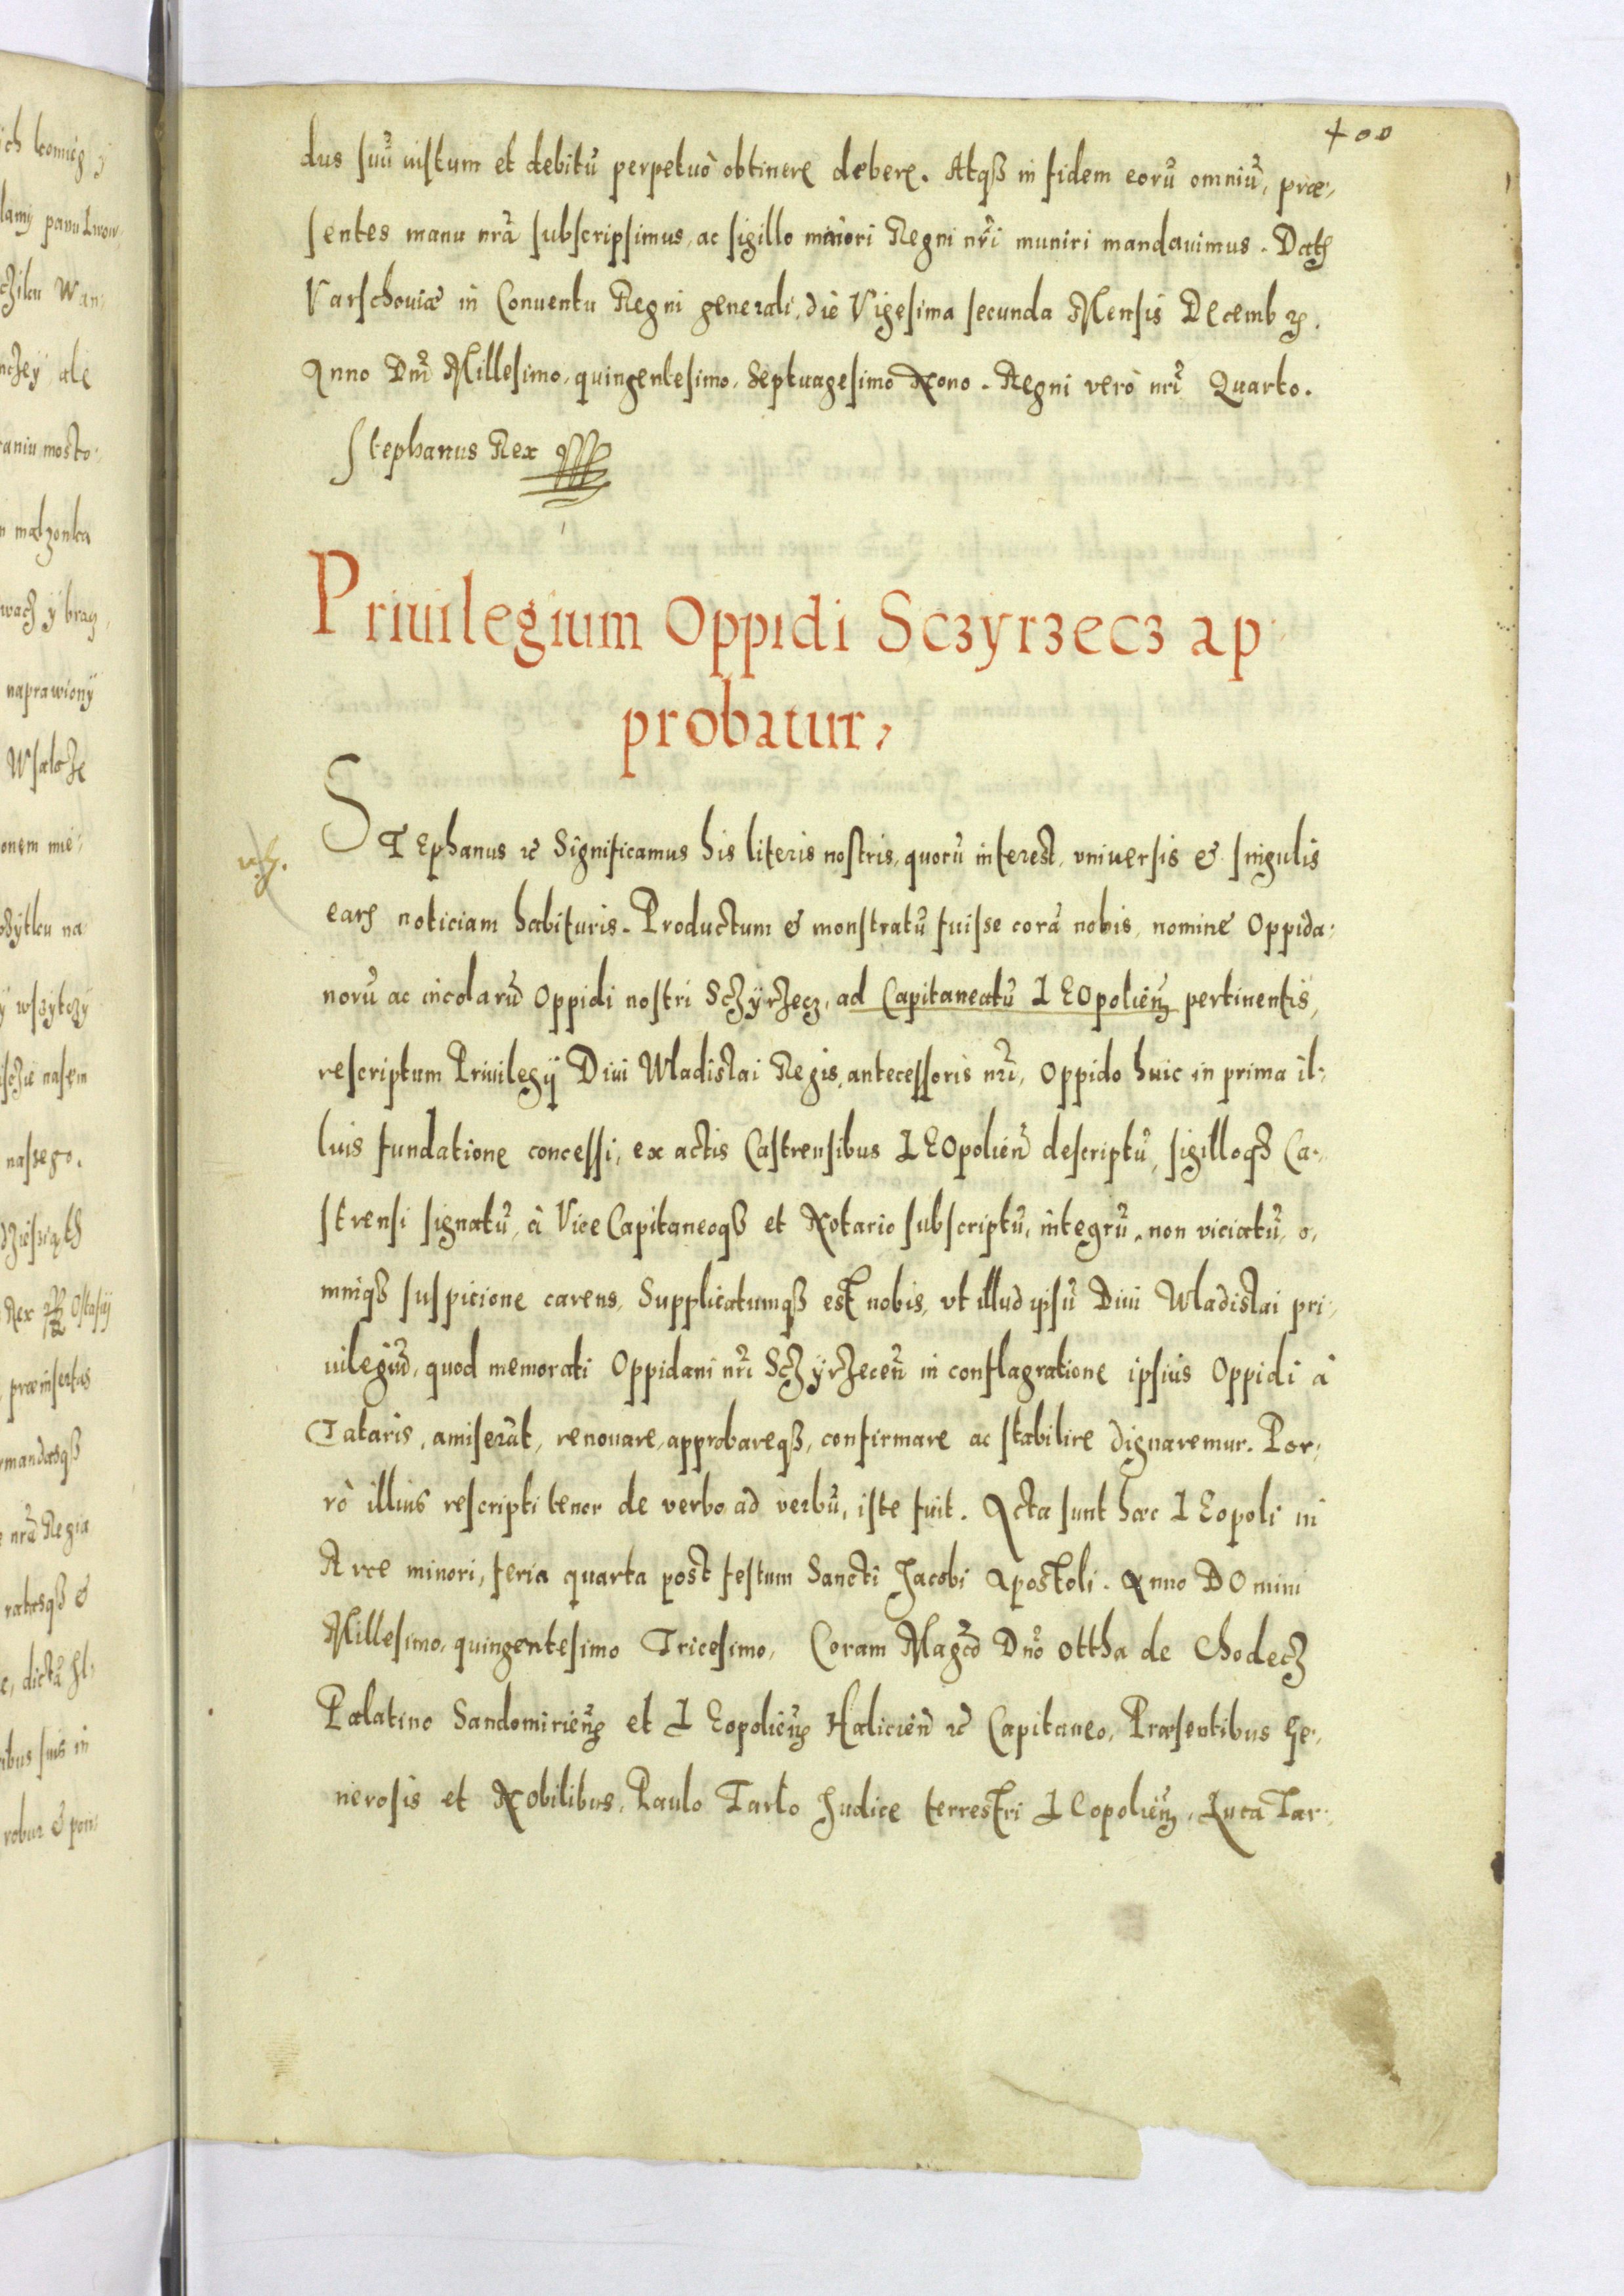 400
dus suũ iustum et debitũ perpetuò obtinere debere. Atqʒ in fidem eorũ omniũ, præ-
sentes manu nrã subscripsimus, ac sigillo maiori Regni nrĩ muniri mandauimus. Datꝭ
Varschouiæ in Conuentu Regni generali, die Vigesima secunda Mensis Decembꝝ.
Anno Dnĩ Millesimo, quingentesimo, Septuagesimo Nono. Regni verò nrĩ Quarto.
Stephanus Rex
Priuilegium Oppidi Sczyrzecz ap
probatur,
STEphanus ꝛc Significamus his literis nostris, quorũ interest, vniuersis & singulis
earꝭ noticiam habituris. Productum & monstratũ fuisse corã nobis, nomine Oppida-
norũ ac incolarũ Oppidi nostri Sczÿrzecz, ad Capitaneatũ LEOpolieñ pertinentis,
rescriptum Priuilegÿ Diui Wladislai Regis, antecessoris nrĩ, Oppido huic in prima il-
luis fundatione concessi, ex actis Castrensibus LEOpolieñ descriptũ, sigilloqʒ Ca-
strensi signatũ, à Vice Capitaneoqʒ et Notario subscriptũ, integrũ, non viciatũ, o-
mniqʒ suspicione carens, Supplicatumqʒ est nobis, vt illud ipsũ Diui Wladislai pri-
uilegiũ, quod memorati Oppidani nrĩ Sczÿrzeceñ in conflagratione ipsius Oppidi à
Tataris, amiserãt, renouare, approbareqʒ, confirmare ac stabilire dignaremur. Por-
rò illius rescripti tenor de verbo ad verbũ, iste fuit. Acta sunt hæc LEopoli in
Arce minori, feria quarta post festum Sancti Jacobi Apostoli. Anno DOmini
Millesimo, quingentesimo Tricesimo, Coram Magcõ Dnõ Ottha de Chodecz
Palatino Sandomirieñ et LEopolieñ Halicieñ ꝛc Capitaneo, Præsentibus Ge-
nerosis et NObilibus, Paulo Tarlo Judice terrestri LEopolieñ, Luca Tar-